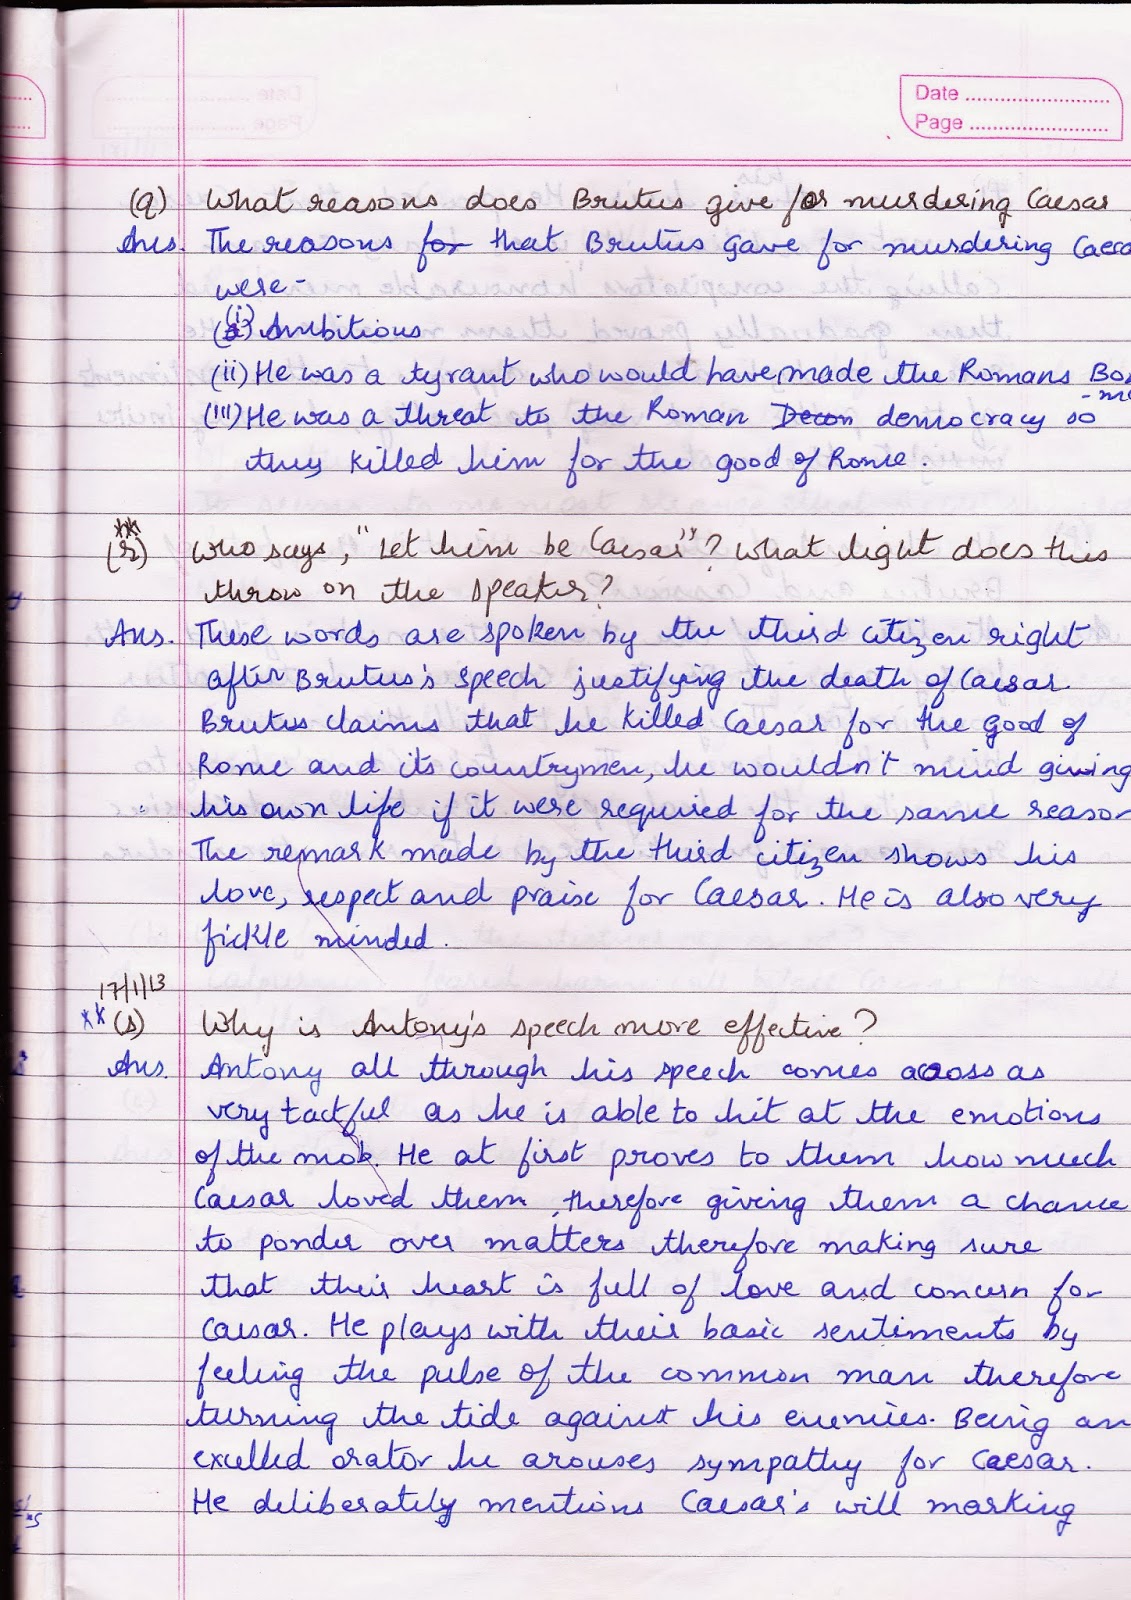 Date ..........................
Page ..........................
(q) What reasons does Brutus give for murdering Caesar
Ans. The reasons for that Brutus gave for murdering Caesa
were -
(i) Ambitious
(ii) He was a tyrant who would have made the Romans Bo
(iii) He was a threat to the Roman Decon democracy so
they killed him for the good of Rome.
**
(r) Who says, "Let him be Caesar"? What light does this
throw on the speaker?
Ans. These words are spoken by the third citizen right
after Brutus's speech justifying the death of Caesar.
Brutus claims that he killed Caesar for the good of
Rome and its countrymen, he wouldn't mind giving
his own life if it were required for the same reason
The remark made by the third citizen shows his
love, respect and praise for Caesar. He is also very
fickle minded.
17/1/13
** (s) Why is Antony's speech more effective?
Ans. Antony all through his speech comes across as
very tactful as he is able to hit at the emotions
of the mob. He at first proves to them how much
Caesar loved them, therefore giving them a chance
to ponder over matters therefore making sure
that their heart is full of love and concern for
Caesar. He plays with their basic sentiments by
feeling the pulse of the common man therefore
turning the tide against his enemies. Being an
excelled orator he arouses sympathy for Caesar.
He deliberately mentions Caesar's will marking